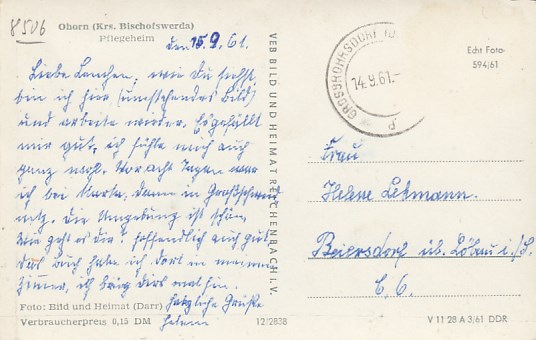 8506
Ohorn (Krs. Bischofswerda)
Pflegeheim
den 15.9.61.
Liebe Lenchen, wie Du siehst,
bin ich hier (umstehendes Bild)
und arbeite wieder. Es gefällt
mir gut, ich fühle mich auch
ganz wohl. Vor acht Tagen war
ich bei Marta, dann in
Die Umgebung ist schön.
Wie geht es Dir? Hoffentlich auch gut.
Das Buch habe ich dort in meinem
Zimmer, ich bring Dirs mal hin.
Herzliche Grüße
Foto: Bild und Heimat (Darr)
Verbraucherpreis 0,15 DM
12/2838
VEB BILD UND HEIMAT REICHENBACH I. V.
GROSSRÖHRSDORF
14.9.61.-
Echt Foto
594/61
Frau
Lehmann.
Beiersdorf üb. Löbau i./S.
V 11 28 A 3/61 DDR